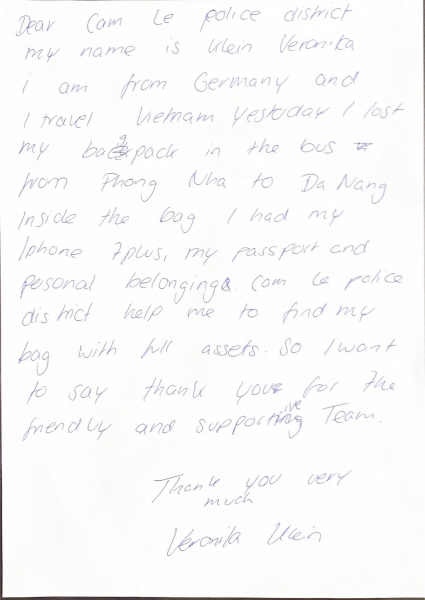 Dear Cam Le police district
my name is Klein Veronika
i am from Germany and
I travel Vietnam. Yesterday I lost
my bagpack in the bus
from Phong Nha to Da Nang
Inside the bag I had my
Iphone 7plus, my passport and
pesonal belongings. Cam Le police
district help me to find my
bag with full assets. So I want
to say thank you for the
friendly and supportive Team.
Thank you very
much
Veronika Klein